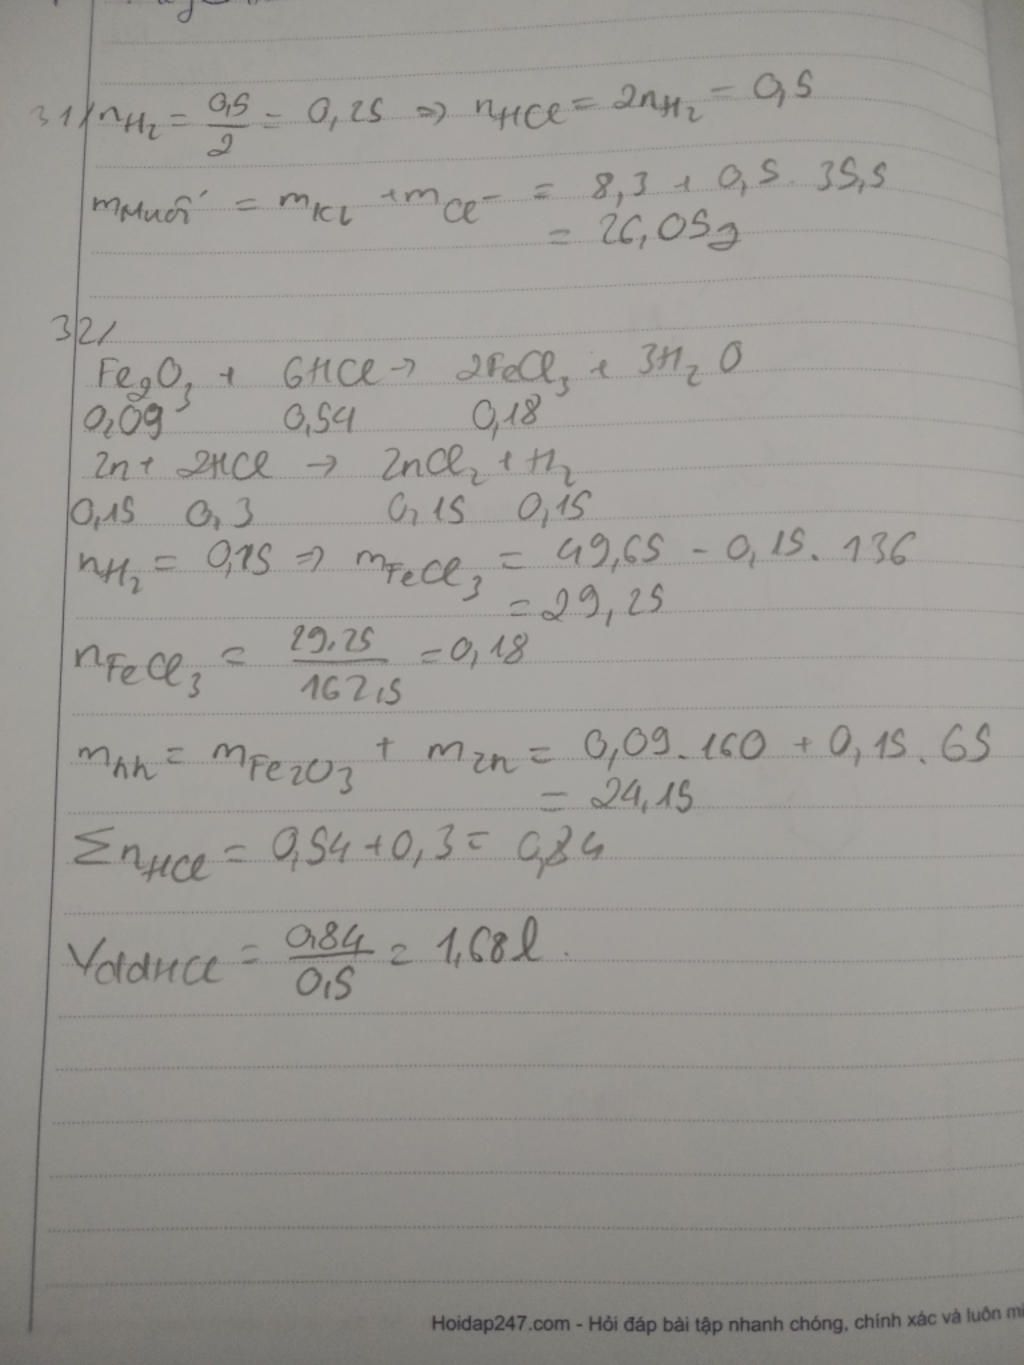 31/ nH₂ = 0,5/2 = 0,25 ⇒ nHCl = 2nH₂ = 0,5
mMuối = mKL + mCl⁻ = 8,3 + 0,5 . 35,5
= 26,05g
32/
Fe₂O₃ + 6HCl → 2FeCl₃ + 3H₂O
0,09 0,54 0,18
Zn + 2HCl → ZnCl₂ + H₂
0,15 0,3 0,15 0,15
nH₂ = 0,15 ⇒ mFeCl₃ = 49,65 - 0,15 . 136
= 29,25
nFeCl₃ = 29,25/162,5 = 0,18
mhh = mFe₂O₃ + mZn = 0,09 . 160 + 0,15 . 65
= 24,15
ΣnHCl = 0,54 + 0,3 = 0,84
VddHCl = 0,84/0,5 = 1,68l.
Hoidap247.com - Hỏi đáp bài tập nhanh chóng, chính xác và luôn mi